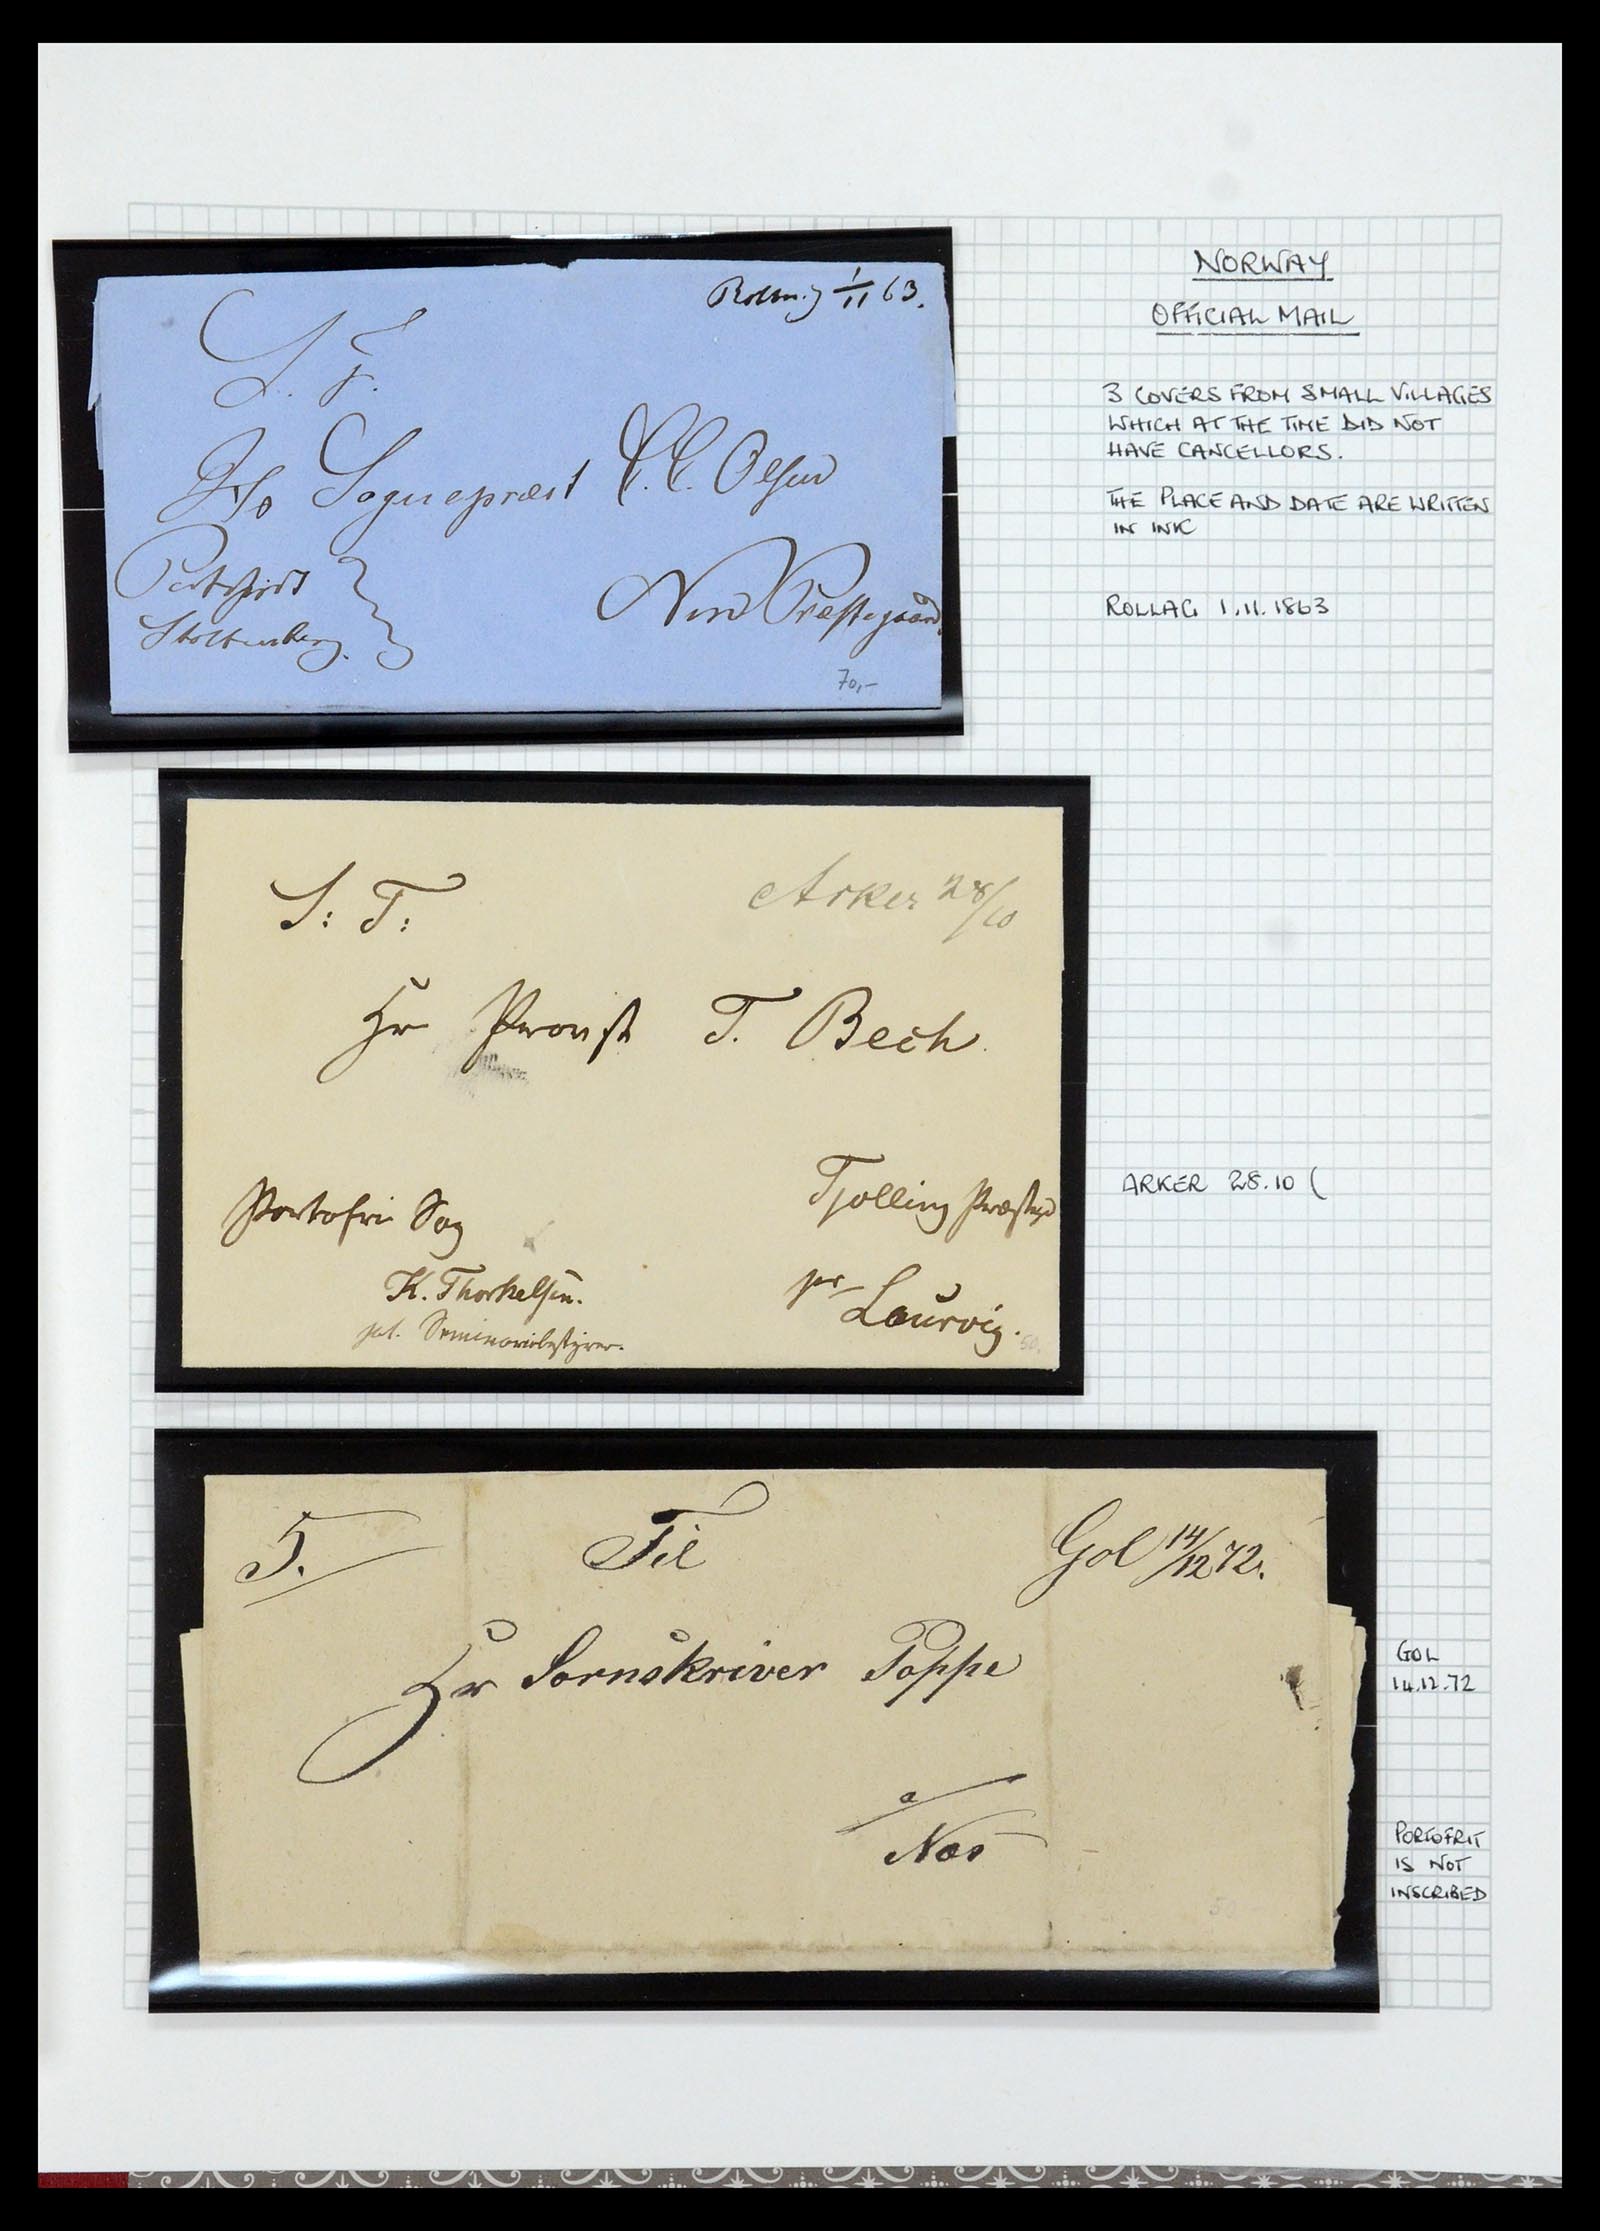 NORWAY
OFFICIAL MAIL
3 COVERS FROM SMALL VILLAGES
WHICH AT THE TIME DID NOT
HAVE CANCELLORS.
THE PLACE AND DATE ARE WRITTEN
IN INK
ROLLAG 1.11.1863
1/11 63.
S. T.
Sognepræst C. C. Olsen
Stoltenberg.
Præstegaard.
70,-
S: T:
Arker 28/10
Hr Provst T. Bech.
Portofri Sag
Tjølling Præstegd
K. Thorkelsen.
pr
Laurvig.
50.
ARKER 28.10 (
Til
Gol 14/12 72.
Hr Sornskriver Poppe
a/
Næs
50
GOL
14.12.72
PORTOFRIT
IS NOT
INSCRIBED